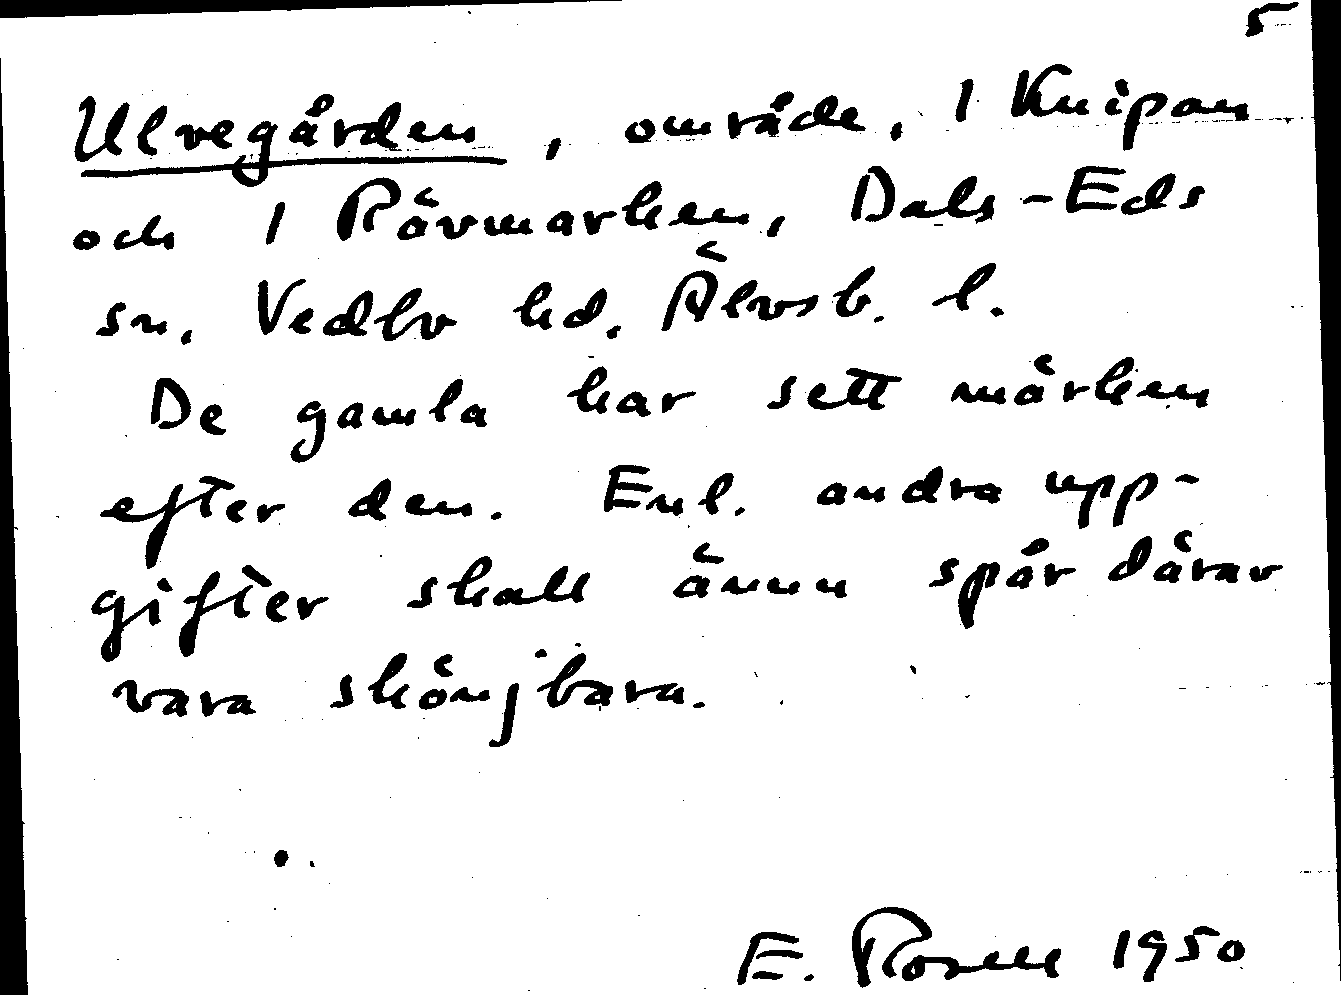 5
Ulvegården, område, 1 Knipan
och 1 Rävmarken, Dals-Eds
sn. Vedbo hd. Älvsb. l.
De gamla har sett märken
efter den. Enl. andra upp-
gifter skall ännu spår därav
vara skönjbara.
E. Rosell 1950